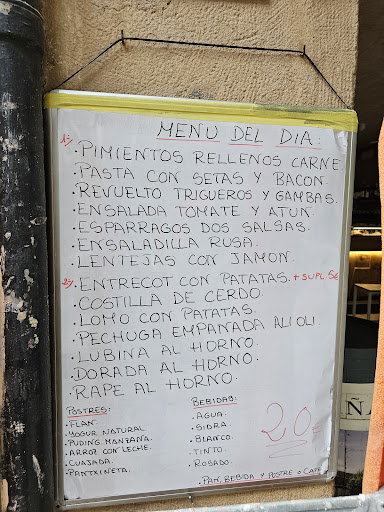 MENU DEL DIA:
1º/. PIMIENTOS RELLENOS CARNE
. PASTA CON SETAS Y BACON.
. REVUELTO TRIGUEROS Y GAMBAS.
. ENSALADA TOMATE Y ATUN.
. ESPARRAGOS DOS SALSAS.
. ENSALADILLA RUSA.
. LENTEJAS CON JAMON.
2º/. ENTRECOT CON PATATAS. + SUPL 5€
. COSTILLA DE CERDO.
. LOMO CON PATATAS.
. PECHUGA EMPANADA ALI OLI.
. LUBINA AL HORNO.
. DORADA AL HORNO.
. RAPE AL HORNO.
POSTRES:
. FLAN.
. YOGUR NATURAL
. PUDING MANZANA.
. ARROZ CON LECHE.
. CUAJADA.
. PANTXINETA.
BEBIDAS:
. AGUA.
. SIDRA.
. BLANCO.
. TINTO.
. ROSADO.
20€
PAN, BEBIDA Y POSTRE O CAFE